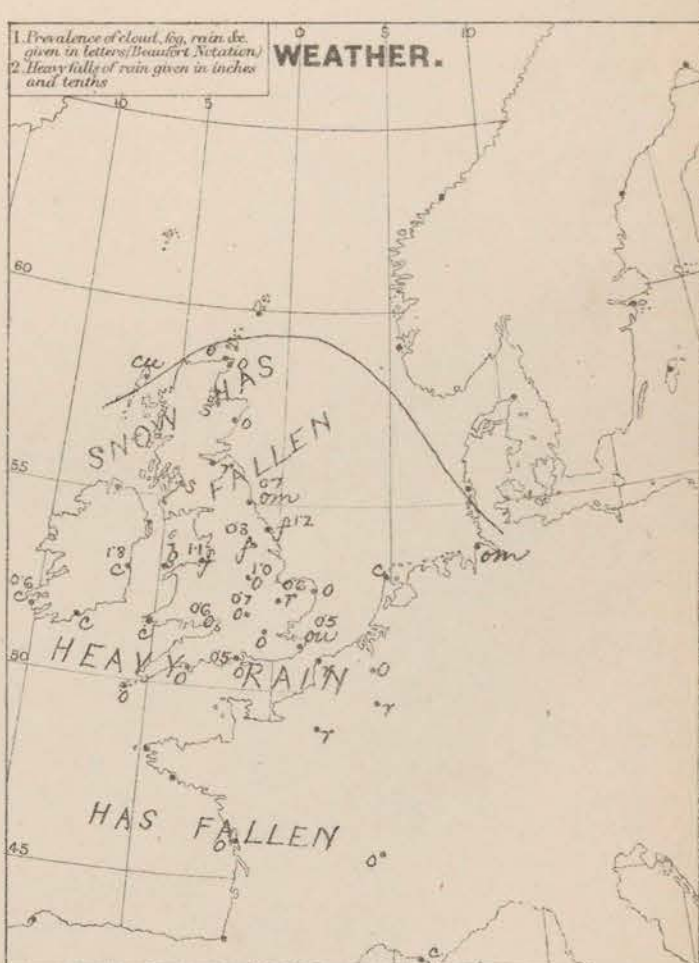 1. Prevalence of cloud, fog, rain &c.
given in letters (Beaufort Notation)
2. Heavy falls of rain given in inches
and tenths
WEATHER.
10 5 0 5 10
60
SNOW HAS FALLEN
55
0.7
om
f 1.2
0.8
1.8
c
1.0
o
om
c
0.6
c
0.7
o
r
o
0.6
0.5
ou
c
c
50
HEAVY RAIN
0.5
o
o
o
o
r
r
HAS FALLEN
o
45
o
c